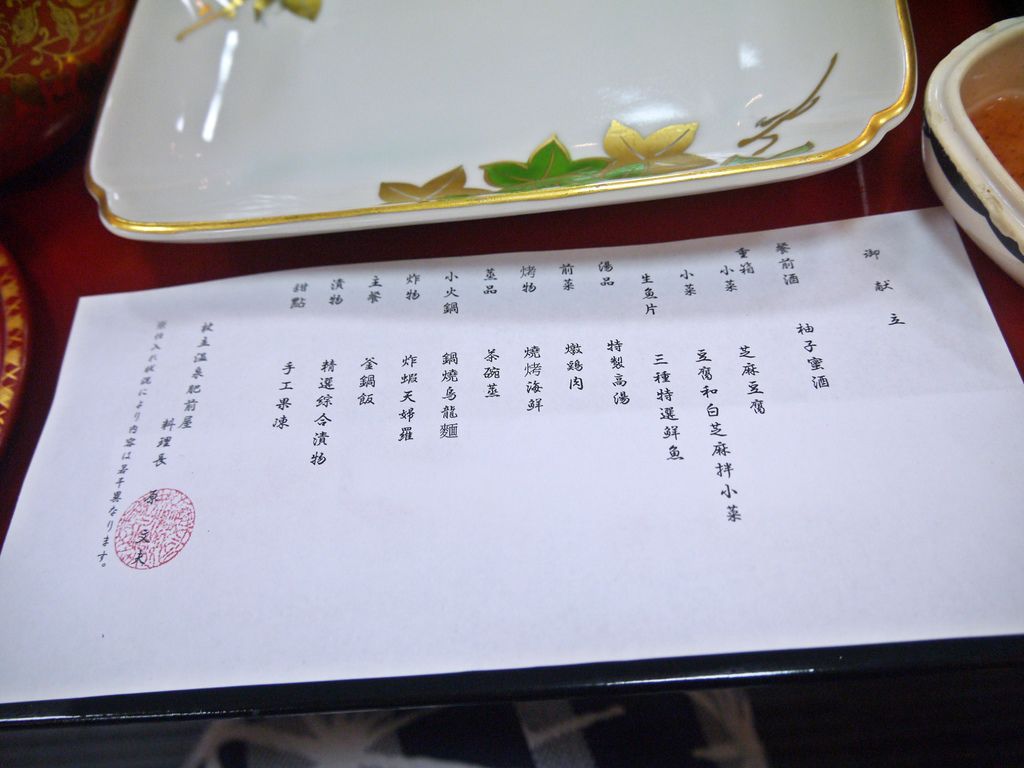 御献立
餐前酒 柚子蜜酒
重箱小菜 芝麻豆腐
小菜 豆腐和白芝麻拌小菜
生魚片 三種特選鮮魚
湯品 特製高湯
前菜 燉鶏肉
烤物 燒烤海鮮
蒸品 茶碗蒸
小火鍋 鍋燒烏龍麵
炸物 炸蝦天婦羅
主餐 釜鍋飯
漬物 精選綜合漬物
甜點 手工果凍
杖立温泉肥前屋
料理長 原 文夫
※仕入れ状況により内容は若干異なります。